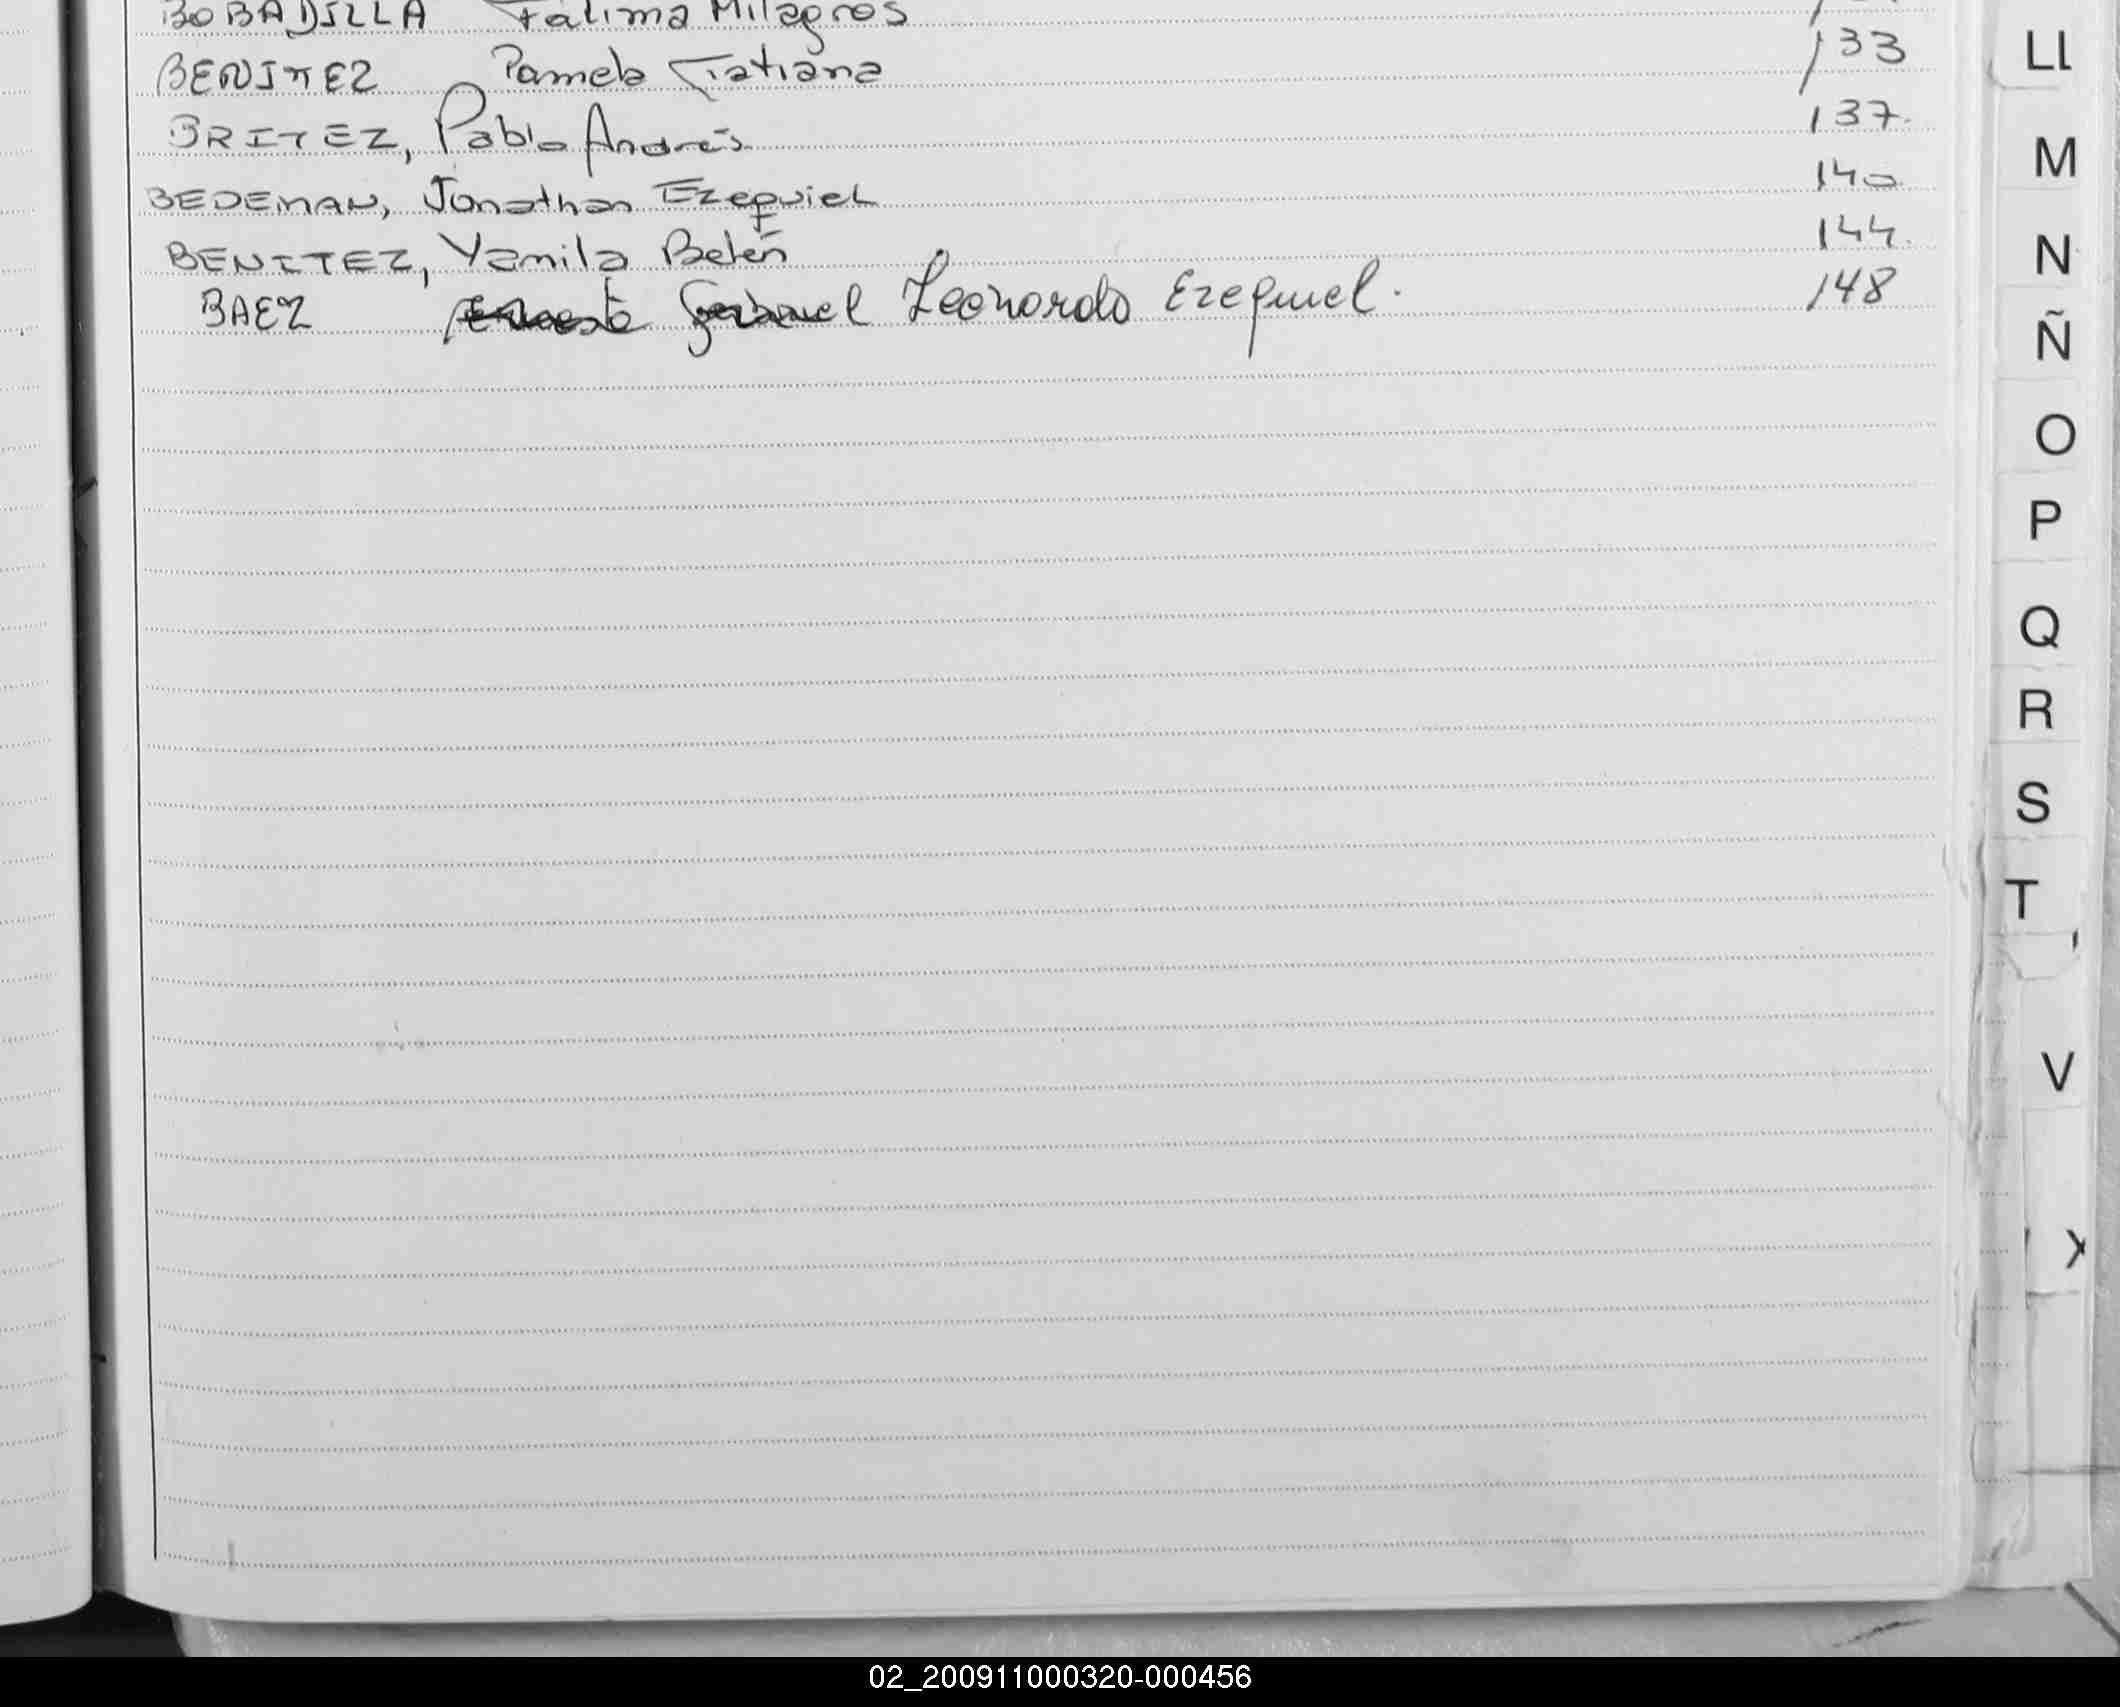 BOBADILLA Fatima Milagros
BENITEZ Pamela Tatiana 133
BRITEZ, Pablo Andrés 137.
BEDEMAN, Jonathan Ezequiel 140
BENITEZ, Yamila Belén 144.
BAEZ Leonardo Ezequiel. 148
Ll
M
N
Ñ
O
P
Q
R
S
T
V
X
02_200911000320-000456